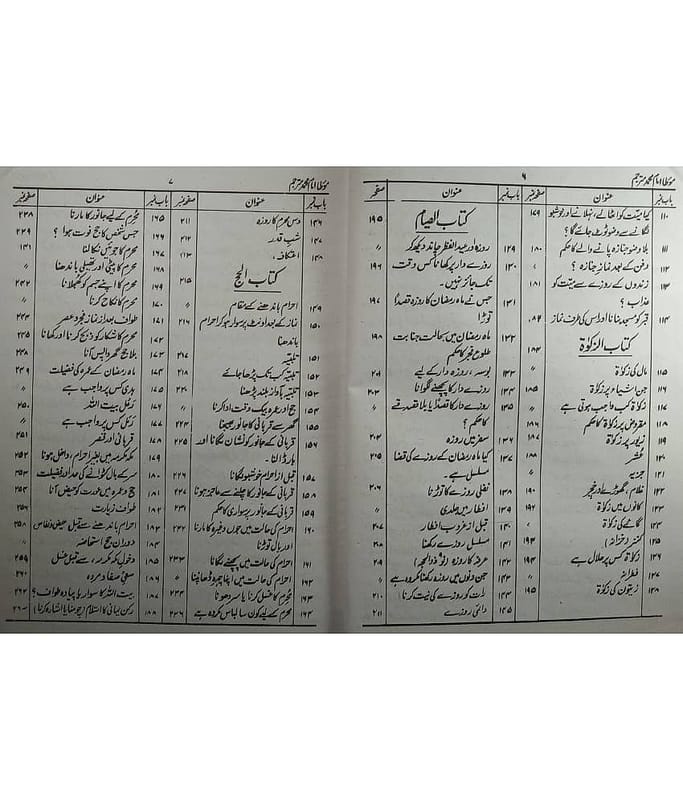 مؤطا امام محمد مترجم
۶
باب نمبر
عنوان
صفحہ نمبر
۱۱۰
کیا میت کو اٹھانے، نہلانے اور خوشبو
لگانے سے وضو ٹوٹ جائے گا؟
۱۱۱
بلا وضو جنازہ پانے والے کا حکم
۱۸۰
۱۱۲
دفن کے بعد نماز جنازہ؟
۱۱۳
زندوں کے روزے سے میت کو
عذاب؟
۱۱۴
قبر کو مسجد بنانا اور اس کی طرف نماز
کتاب الزکوٰۃ
۱۱۵
مال کی زکوٰۃ
۱۱۶
جن اشیاء پر زکوٰۃ
۱۸۵
۱۱۷
زکوٰۃ کب واجب ہوتی ہے
۱۱۸
مقروض پر زکوٰۃ کا حکم
۱۸۶
۱۱۹
زیور پر زکوٰۃ
۱۸۷
۱۲۰
عشر
۱۲۱
جزیہ
۱۲۲
غلام، گھوڑے اور خچر
۱۹۰
۱۲۳
کانوں میں زکوٰۃ
۱۹۲
۱۲۴
گائے کی زکوٰۃ
۱۲۵
کنز (خزانہ)
۱۹۳
۱۲۶
زکوٰۃ کس پر حلال ہے
۱۲۷
فطرانہ
۱۲۸
زیتون کی زکوٰۃ
۱۹۵
باب نمبر
عنوان
صفحہ
کتاب الصیام
۱۹۵
۱۲۹
روزہ اور عید الفطر چاند دیکھ کر
۱۳۰
روزے دار پر کھانا کس وقت
۱۹۶
تک جائز نہیں۔
۱۳۱
جس نے ماہ رمضان کا روزہ قصداً
۱۹۷
توڑا
۱۳۲
ماہ رمضان میں بحالت جنابت
۱۹۸
طلوع فجر کا حکم
۱۳۳
بوسہ، روزہ دار کے لیے
۲۰۱
۱۳۴
روزے دار کا پچھنے لگوانا
۲۰۲
۱۳۵
روزے دار کا قصداً یا بلا قصد قے
کا حکم؟
۱۳۶
سفر میں روزہ
۲۰۳
۱۳۷
کیا ماہ رمضان کے روزے کی قضا
مسلسل ہے۔
۱۳۸
نفلی روزے کا توڑنا
۲۰۶
۱۳۹
افطار میں جلدی
۱۴۰
قبل از غروب افطار
۲۰۷
۱۴۱
مسلسل روزے رکھنا
۲۰۸
۱۴۲
عرفہ کا روزہ (نو ذوالحجہ)
۲۰۹
۱۴۳
جن دنوں میں روزے رکھنا مکروہ ہے
۱۴۴
رات کو روزے کی نیت کرنا
۲۱۰
۱۴۵
دائمی روزے
۲۱۱
مؤطا امام محمد مترجم
۷
باب نمبر
عنوان
صفحہ نمبر
۱۴۶
دس محرم کا روزہ
۲۱۱
۱۴۷
شب قدر
۲۱۲
۱۴۸
اعتکاف
کتاب الحج
۲۱۵
۱۴۹
احرام باندھنے کے مقام
۱۵۰
نماز کے بعد اونٹ پر سوار ہو کر احرام
۲۱۶
باندھنا
۱۵۱
تلبیہ
۲۱۷
۱۵۲
تلبیہ کب تک پڑھا جائے
۲۱۸
۱۵۳
تلبیہ باواز بلند پڑھنا
۲۲۰
۱۵۴
حج اور عمرہ بیک وقت ادا کرنا
۱۵۵
گھر سے قربانی کا جانور بھیجنا
۱۵۶
قربانی کے جانور کو نشان لگانا اور
۲۲۵
ہار ڈالنا۔
۱۵۷
قبل از احرام خوشبو لگانا
۲۲۶
۱۵۸
قربانی کے جانور کا چلنے سے عاجز ہونا
۱۵۹
قربانی کے جانور پر سواری کا حکم
۱۶۰
احرام کی حالت میں جوں وغیرہ کا مارنا
اور بال توڑنا
۱۶۱
احرام کی حالت میں پچھنے لگانا
۲۳۳
۱۶۲
احرام کی حالت میں اپنا چہرہ ڈھانپنا
۱۶۳
محرم کا غسل کرنا یا سر دھونا
۲۳۴
۱۶۴
محرم کے لیے کون سا لباس مکروہ ہے
۲۳۶
باب نمبر
عنوان
صفحہ نمبر
۱۶۵
محرم کے لیے جانور کا مارنا
۲۳۸
جس شخص کا حج فوت ہوا؟
۲۳۹
محرم کا جوئیں نکالنا
۱۶۸
محرم کا پیٹی اور تھیلی باندھنا
۱۶۹
محرم کا اپنے جسم کو کھجلانا
محرم کا نکاح کرنا
۱۷۱
طواف بعد از نماز فجر و عصر
محرم کا شکار کو ذبح کرنا اور کھانا
بلا حج گھر واپس آنا
ماہ رمضان کے عمرہ کی فضیلت
ہدی کس پر واجب ہے
رمل بیت اللہ
رمل کس پر واجب ہے
۱۷۸
قربانی اور قصر
۲۵۱
۱۷۹
مکہ مکرمہ میں بغیر احرام داخل ہونا
۲۵۲
سر کے بال کٹوانے کی حد اور فضیلت
۲۵۳
۱۸۱
حج و عمرہ میں عورت کو حیض آنا
۱۸۲
طواف زیارت
احرام باندھنے سے قبل حیض و نفاس
۱۸۴
دوران حج استحاضہ
۱۸۵
دخول مکہ مکرمہ سے قبل غسل
۲۵۹
۱۸۶
سعی صفا و مروہ
۲۶۰
۱۸۷
بیت اللہ کا سوار یا پیادہ طواف؟
۱۸۸
رکن یمانی کا استلام (چومنا یا اشارہ کرنا)